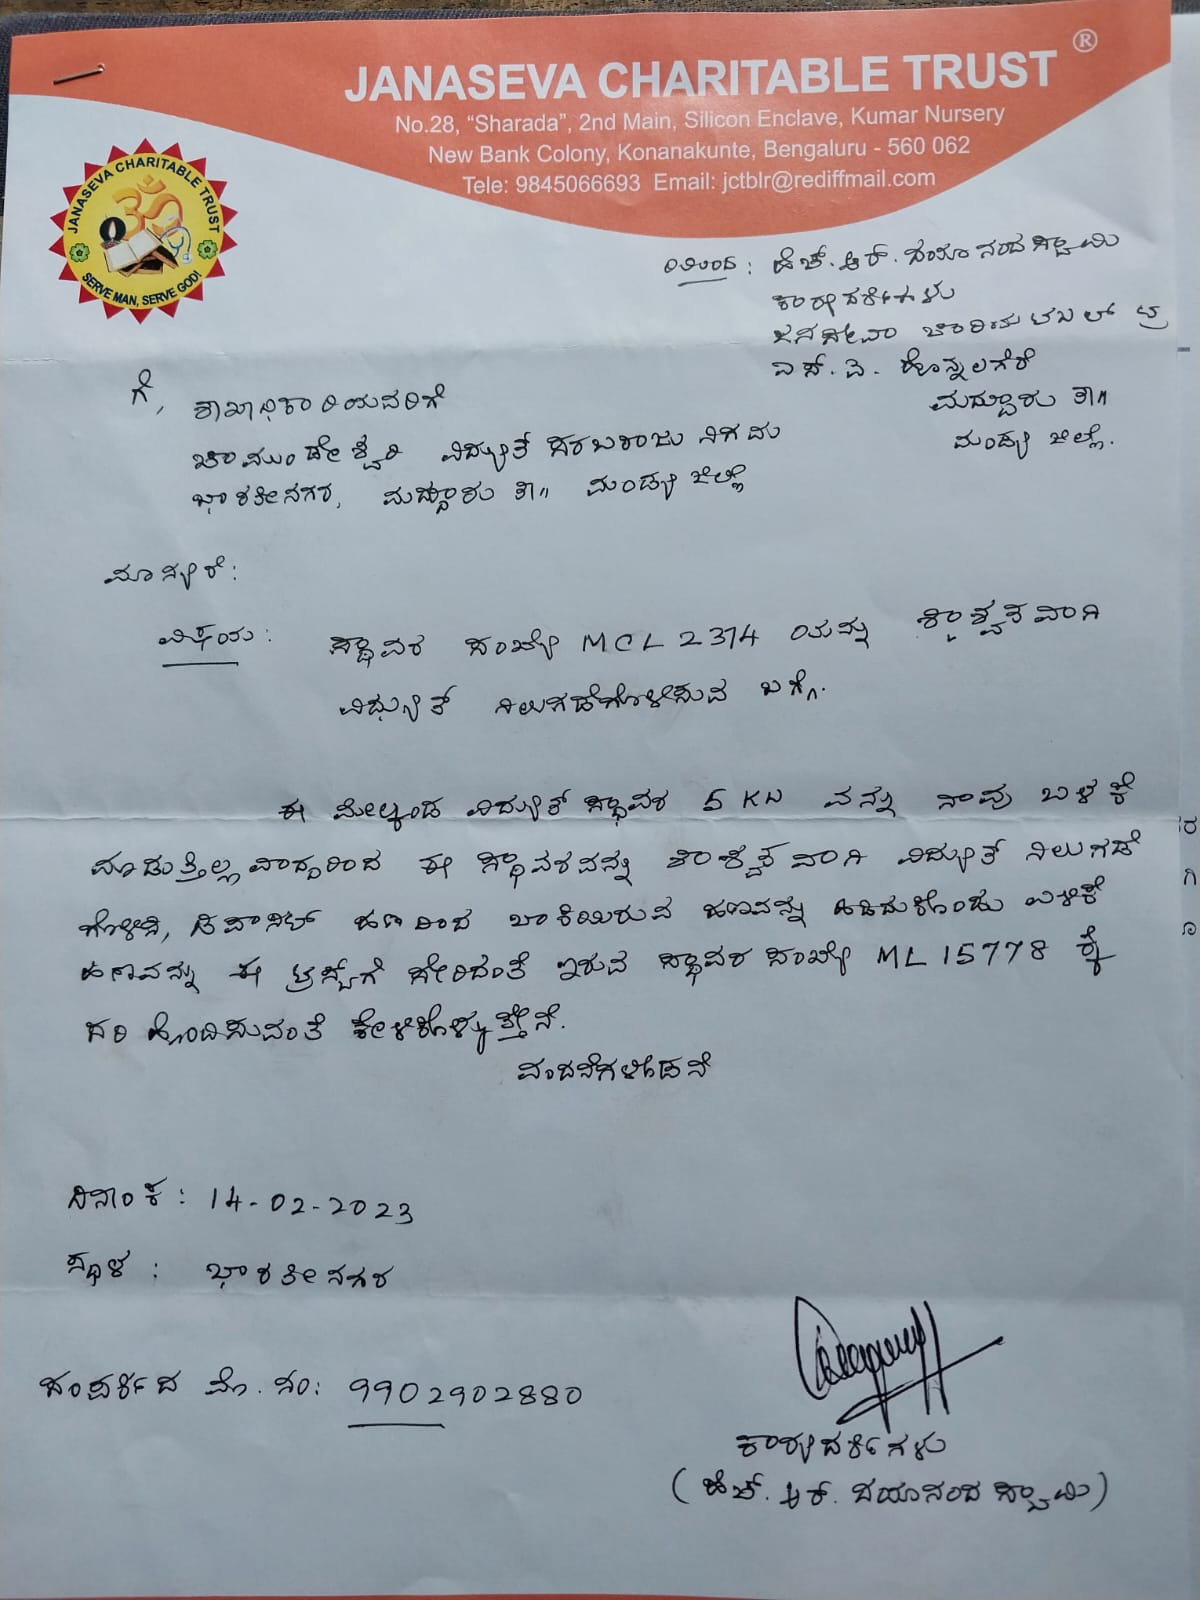 JANASEVA CHARITABLE TRUST ®
No.28, “Sharada”, 2nd Main, Silicon Enclave, Kumar Nursery
New Bank Colony, Konanakunte, Bengaluru - 560 062
Tele: 9845066693 Email: jctblr@rediffmail.com
JANASEVA CHARITABLE TRUST
SERVE MAN, SERVE GOD!
ರಿಂದ : ಹೆಚ್. ಆರ್. ದಯಾನಂದಸ್ವಾಮಿ
ಕಾರ್ಯದರ್ಶಿಗಳು
ಜನಸೇವಾ ಚಾರಿಟಬಲ್ ಟ್ರ
ಎಸ್. ಐ. ಹೊನ್ನಲಗೆರೆ
ಮದ್ದೂರು ತಾ॥
ಮಂಡ್ಯ ಜಿಲ್ಲೆ.
ಗೆ,
ಶಾಖಾಧಿಕಾರಿಯವರಿಗೆ
ಚಾಮುಂಡೇಶ್ವರಿ ವಿದ್ಯುತ್ ಸರಬರಾಜು ನಿಗಮ
ಭಾರತೀನಗರ, ಮದ್ದೂರು ತಾ॥ ಮಂಡ್ಯ ಜಿಲ್ಲೆ
ಮಾನ್ಯರೆ :
ವಿಷಯ : ಸ್ಥಾವರ ಸಂಖ್ಯೆ MCL 2374 ಯನ್ನು ಶಾಶ್ವತವಾಗಿ
ವಿದ್ಯುತ್ ನಿಲುಗಡೆಗೊಳಿಸುವ ಬಗ್ಗೆ.
ಈ ಮೇಲ್ಕಂಡ ವಿದ್ಯುತ್ ಸ್ಥಾವರ 5 KW ವನ್ನು ನಾವು ಬಳಕೆ
ಮಾಡುತ್ತಿಲ್ಲವಾದ್ದರಿಂದ ಈ ಸ್ಥಾವರವನ್ನು ಶಾಶ್ವತವಾಗಿ ವಿದ್ಯುತ್ ನಿಲುಗಡೆ
ಗೊಳಿಸಿ, ಡಿಪಾಸಿಟ್ ಹಣದಿಂದ ಬಾಕಿಯಿರುವ ಹಣವನ್ನು ಹಿಡಿದುಕೊಂಡು ಉಳಿಕೆ
ಹಣವನ್ನು ಈ ಟ್ರಸ್ಟ್‌ಗೆ ಸೇರಿದಂತೆ ಇರುವ ಸ್ಥಾವರ ಸಂಖ್ಯೆ ML 15778 ಕ್ಕೆ
ಸರಿ ಹೊಂದಿಸುವಂತೆ ಕೇಳಿಕೊಳ್ಳುತ್ತೇನೆ.
ವಂದನೆಗಳೊಡನೆ
ದಿನಾಂಕ : 14-02-2023
ಸ್ಥಳ : ಭಾರತೀನಗರ
ಸಂಪರ್ಕದ ಮೊ. ಸಂ: 9902902880
ಕಾರ್ಯದರ್ಶಿಗಳು
(ಹೆಚ್. ಆರ್. ದಯಾನಂದ ಸ್ವಾಮಿ)